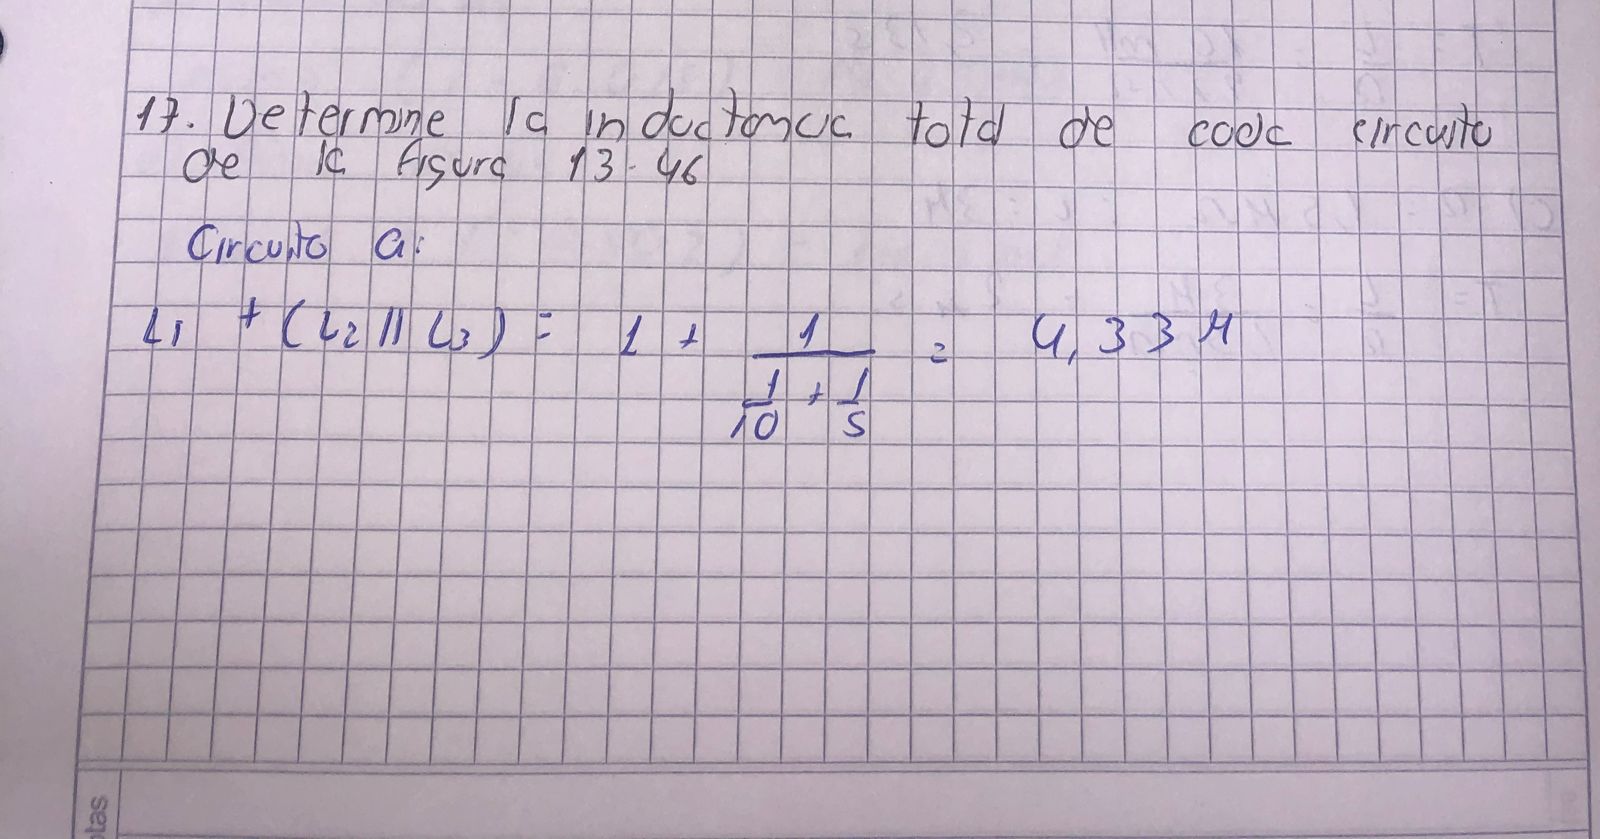 17. Determine la inductancia total de cada circuito
de la figura 13-46
Circuito a:
L1 + (L2 || L3) = 1 + 1 / (1/10 + 1/5) = 4,33 H
otas